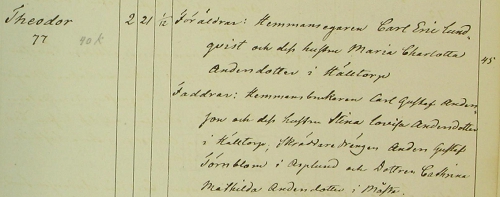 Theodor 2 21 1/12 Föräldrar: Hemmansegaren Carl Eric Lund-
77 90 k qvist och dess hustru Maria Charlotta 45
Andersdotter i Hälltorp
Faddrar: Hemmansbrukaren Carl Gustaf Anders-
son och dess hustru Stina Lovisa Andersdotter
i Hälltorp, Skräddaredrängen Anders Gustaf
Törnblom i Asplund och Dottren Cathrina
Mathilda Andersdotter i